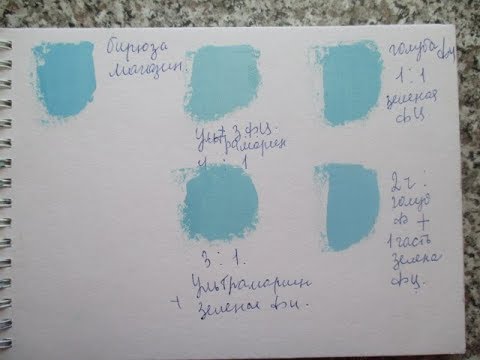 бирюза
магазин.
голуба фц
1 : 1
зеленая
фц
ульт З фц.
ультрамарин
1 : 1
2 ч :
голуб
ф +
1 часть
зелена
фц.
3 : 1.
Ультрамарин
+ зеленая фц.